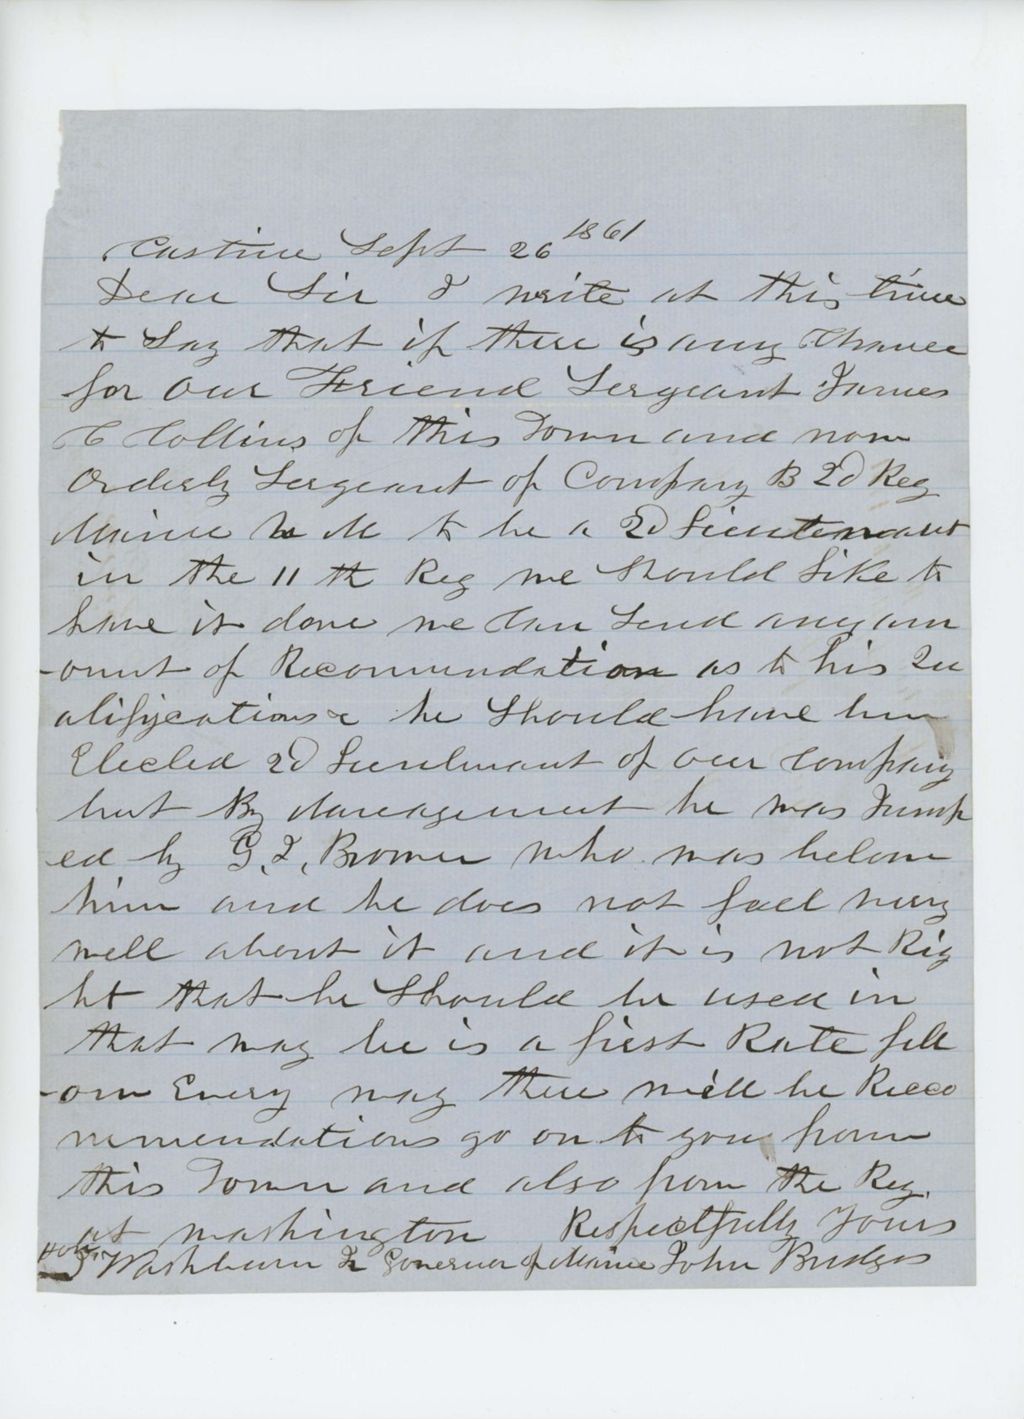 Castine Sept 26 1861
Dear Sir I write at this time
to Say that if there is any Chance
for our Friend Sergeant James
C Collins of this Town and now
Orderly Sergeant of Company B 2d Reg
Maine M to be a 2d Lieutenant
in the 11 th Reg we Should Like to
have it done we Can Send any am
-ount of Recommendation as to his Qu
alifycations & he Should have bin
Elected 2d Lieutenant of our Company
but By Manegement he was Jump
ed by G. I. Brown who was below
him and he does not feel very
well about it and it is not Rig
ht that he Should be used in
that way he is a first Rate fell
-ow Every way there will be Recco
mmendations go on to you from
this Town and also from the Reg.
at Washington Respectfully Yours
Hon I Washburn Jr Governor of Maine John Bridges